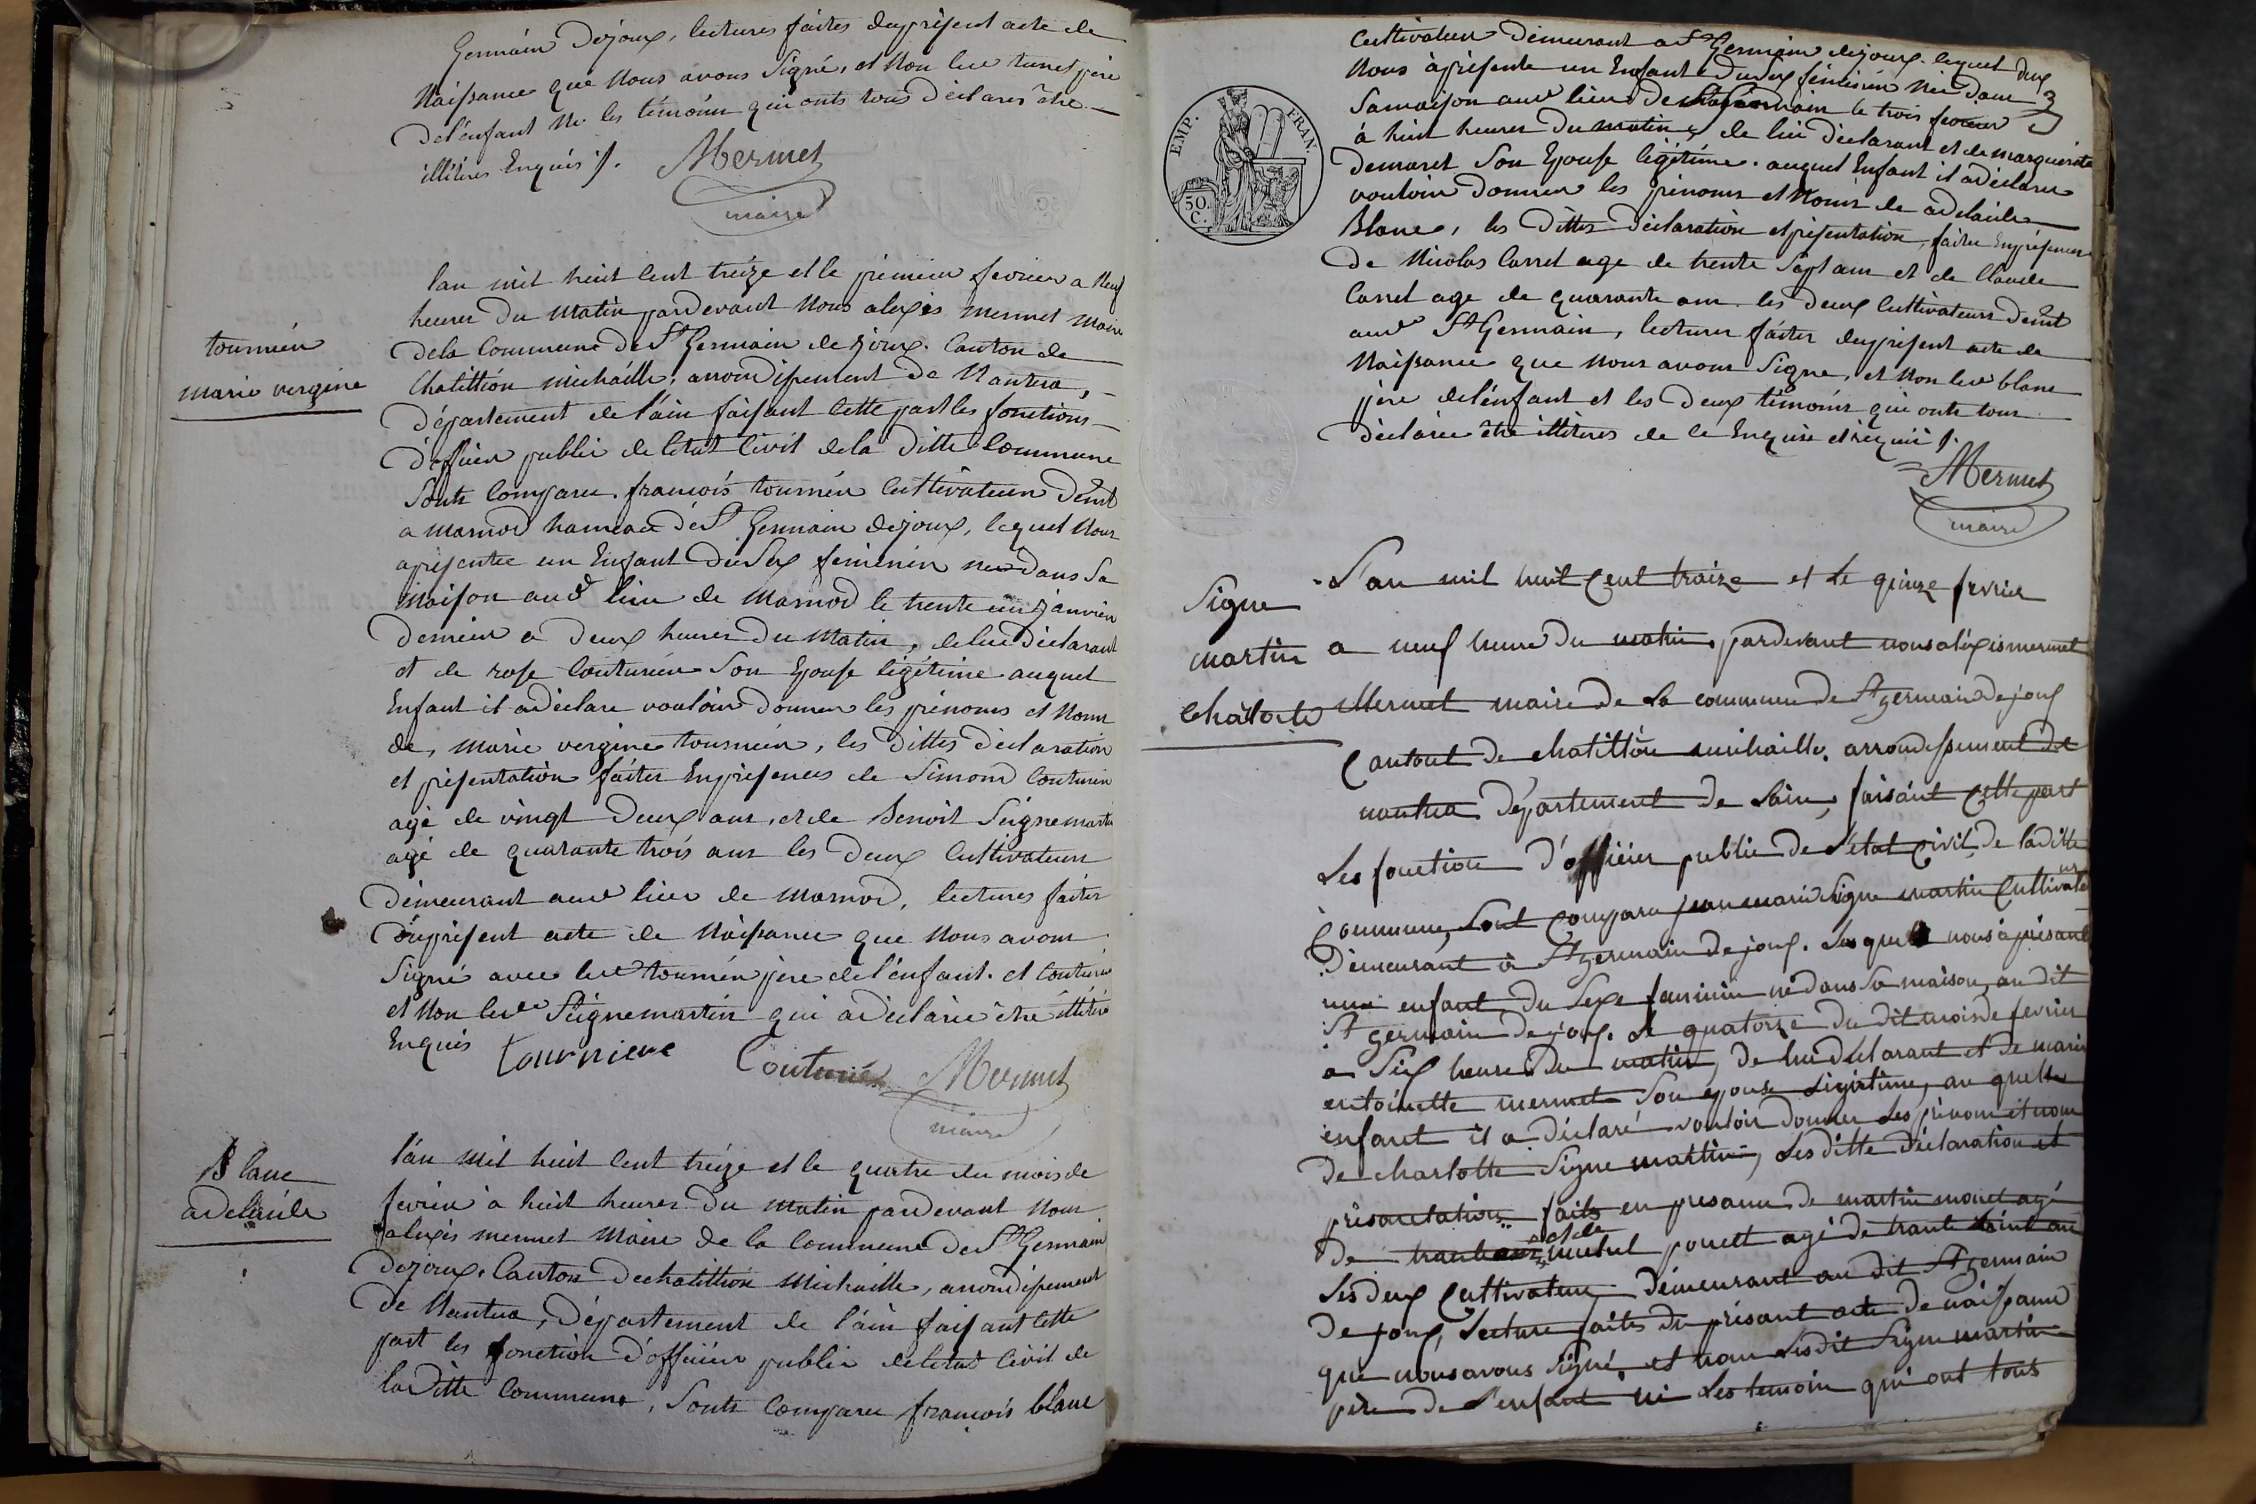 Germain Dejoux, lectures faites du présent acte de
Naissance que Nous avons Signé, et Non led père
del'énfant Ne les témoins qui onts tous déclarés être
illitéres Enquis ./.
Mermet
maire
tournién
marie vergine
lan mil huit Cent tréize et le prémier fevrier a Neuf
heures Du Matin pardevant Nous aléxis mermet maire
dela Commune De St Germain de Joux. Canton de
Chatillion michâille, arrondissement de Nantua,
Département de l'ain faisant Cette part les fonctions
D'officier public de letat Civil dela Ditte Commune
Sonts Comparu françois tournién Cultivateur Demt
a marnod hameau dé St Germain dejoux, lequel Nous
aprésentée un Enfant Du Sex feminin née Dans Sa
Maison aud lieu de Marnod le trente un Janvier
Dernier a Deux heures Du Matin, de lui Déclarant
et de rose Couturier Son Epouse légitime auquel
Enfant il a déclaré vouloir Donner les prénoms et Noms
de, marie vergine tournién, les dittes déclaration
et présentation fáites En présences de Simond Couturier
agé de vingt Deux ans, et de Benoit Seignemartin
agé de quarante trois ans les Deux Cultivateurs
démeurant aud lieu de Marnod, lectures faites
du présent acte de Naissance que Nous avons
Signé avec led tournién père del'énfant. et Couturier
et Non led Seignemartin qui a déclaré être illitéré
Enquis
tourniere
Couturiér
Mermet
maire
Blanc
adelaide
l'án Mil huit Cent tréize et le quatre du mois de
fevrier à huit heures Du Matin pardevant Nous
aléxis mermet Maire de la Commune De St Germain
dejoux. Canton De chatillion Michaille, arrondissement
De Nantua, Département de l'áin faisant Cette
part les fonction d'officiér public de letat Civil de
la Ditte Commune, Sonts Comparu françois blanc
EMP. FRAN.
50. C.
Cultivateur Demeurant a St Germain dejoux. lequel
Nous àprésente un Enfant Du Sex féminin Née Dans
Samaison aud lieu de St Germain le trois fevrier
à huit heures Du matin de lui déclarant et de marguerite
demaret Son Epouse légitime. auquel Enfant il a déclaré
vouloir Donner les prénoms et Noms de adelaide
Blanc, les Dittes Déclaration et présentation, faites En présences
De Nicolas Carrel age de trente Sept ans et de Claude
Carrel age de quarante ans les Deux Cultivateurs Demt
aud St Germain, lectures fáites du présent acte de
Naissance que Nous avons Signé, et Non led blanc
père del'énfant et les Deux témoins qui onts tous
déclarée être illitéres de Ce Enquis et réquis ./.
Mermet
maire
Signe
martin
Chàlote
L'an mil huit Cent traize et Le quinze fevrier
a neuf heure Du matin, pardevant nous aléxis mermet
Mermet maire De La commune De St germain De joux
Cantont de chatillion michaille. arrondissement De
nantua Département De Lain, faisánt Cette part
Les fonction D'officiér public De L'état Civil, De laditte
Commune, Sont Comparu jean marie Signe martin Cultivateur
Démeurant à St germain De joux. Lesquel nous àprésanté
une enfant Du Sexe faminin né Dans Sa maison, au dit
St germain De joux. Le quatorze Du dit mois de fevrier
a Six heure Du matin, De lui Déclarant et De marie
entoinette mermet Son epouse Ligitime, au quelle
enfant il a Déclaré vouloir Donner Les prénom et nom
De charlotte Signe martin, Les ditte Déclaration et
présantation faite en présance De martin monet agé
De et de michel ponett agé De trante an
Les Deux Cultivateur Démeurant au dit St germain
De joux, Lecture faites Du présant acte De naissance
que nous avons Signé, et non Ledit Signe martin
père De L'enfant ni Les temoin qui ont tous